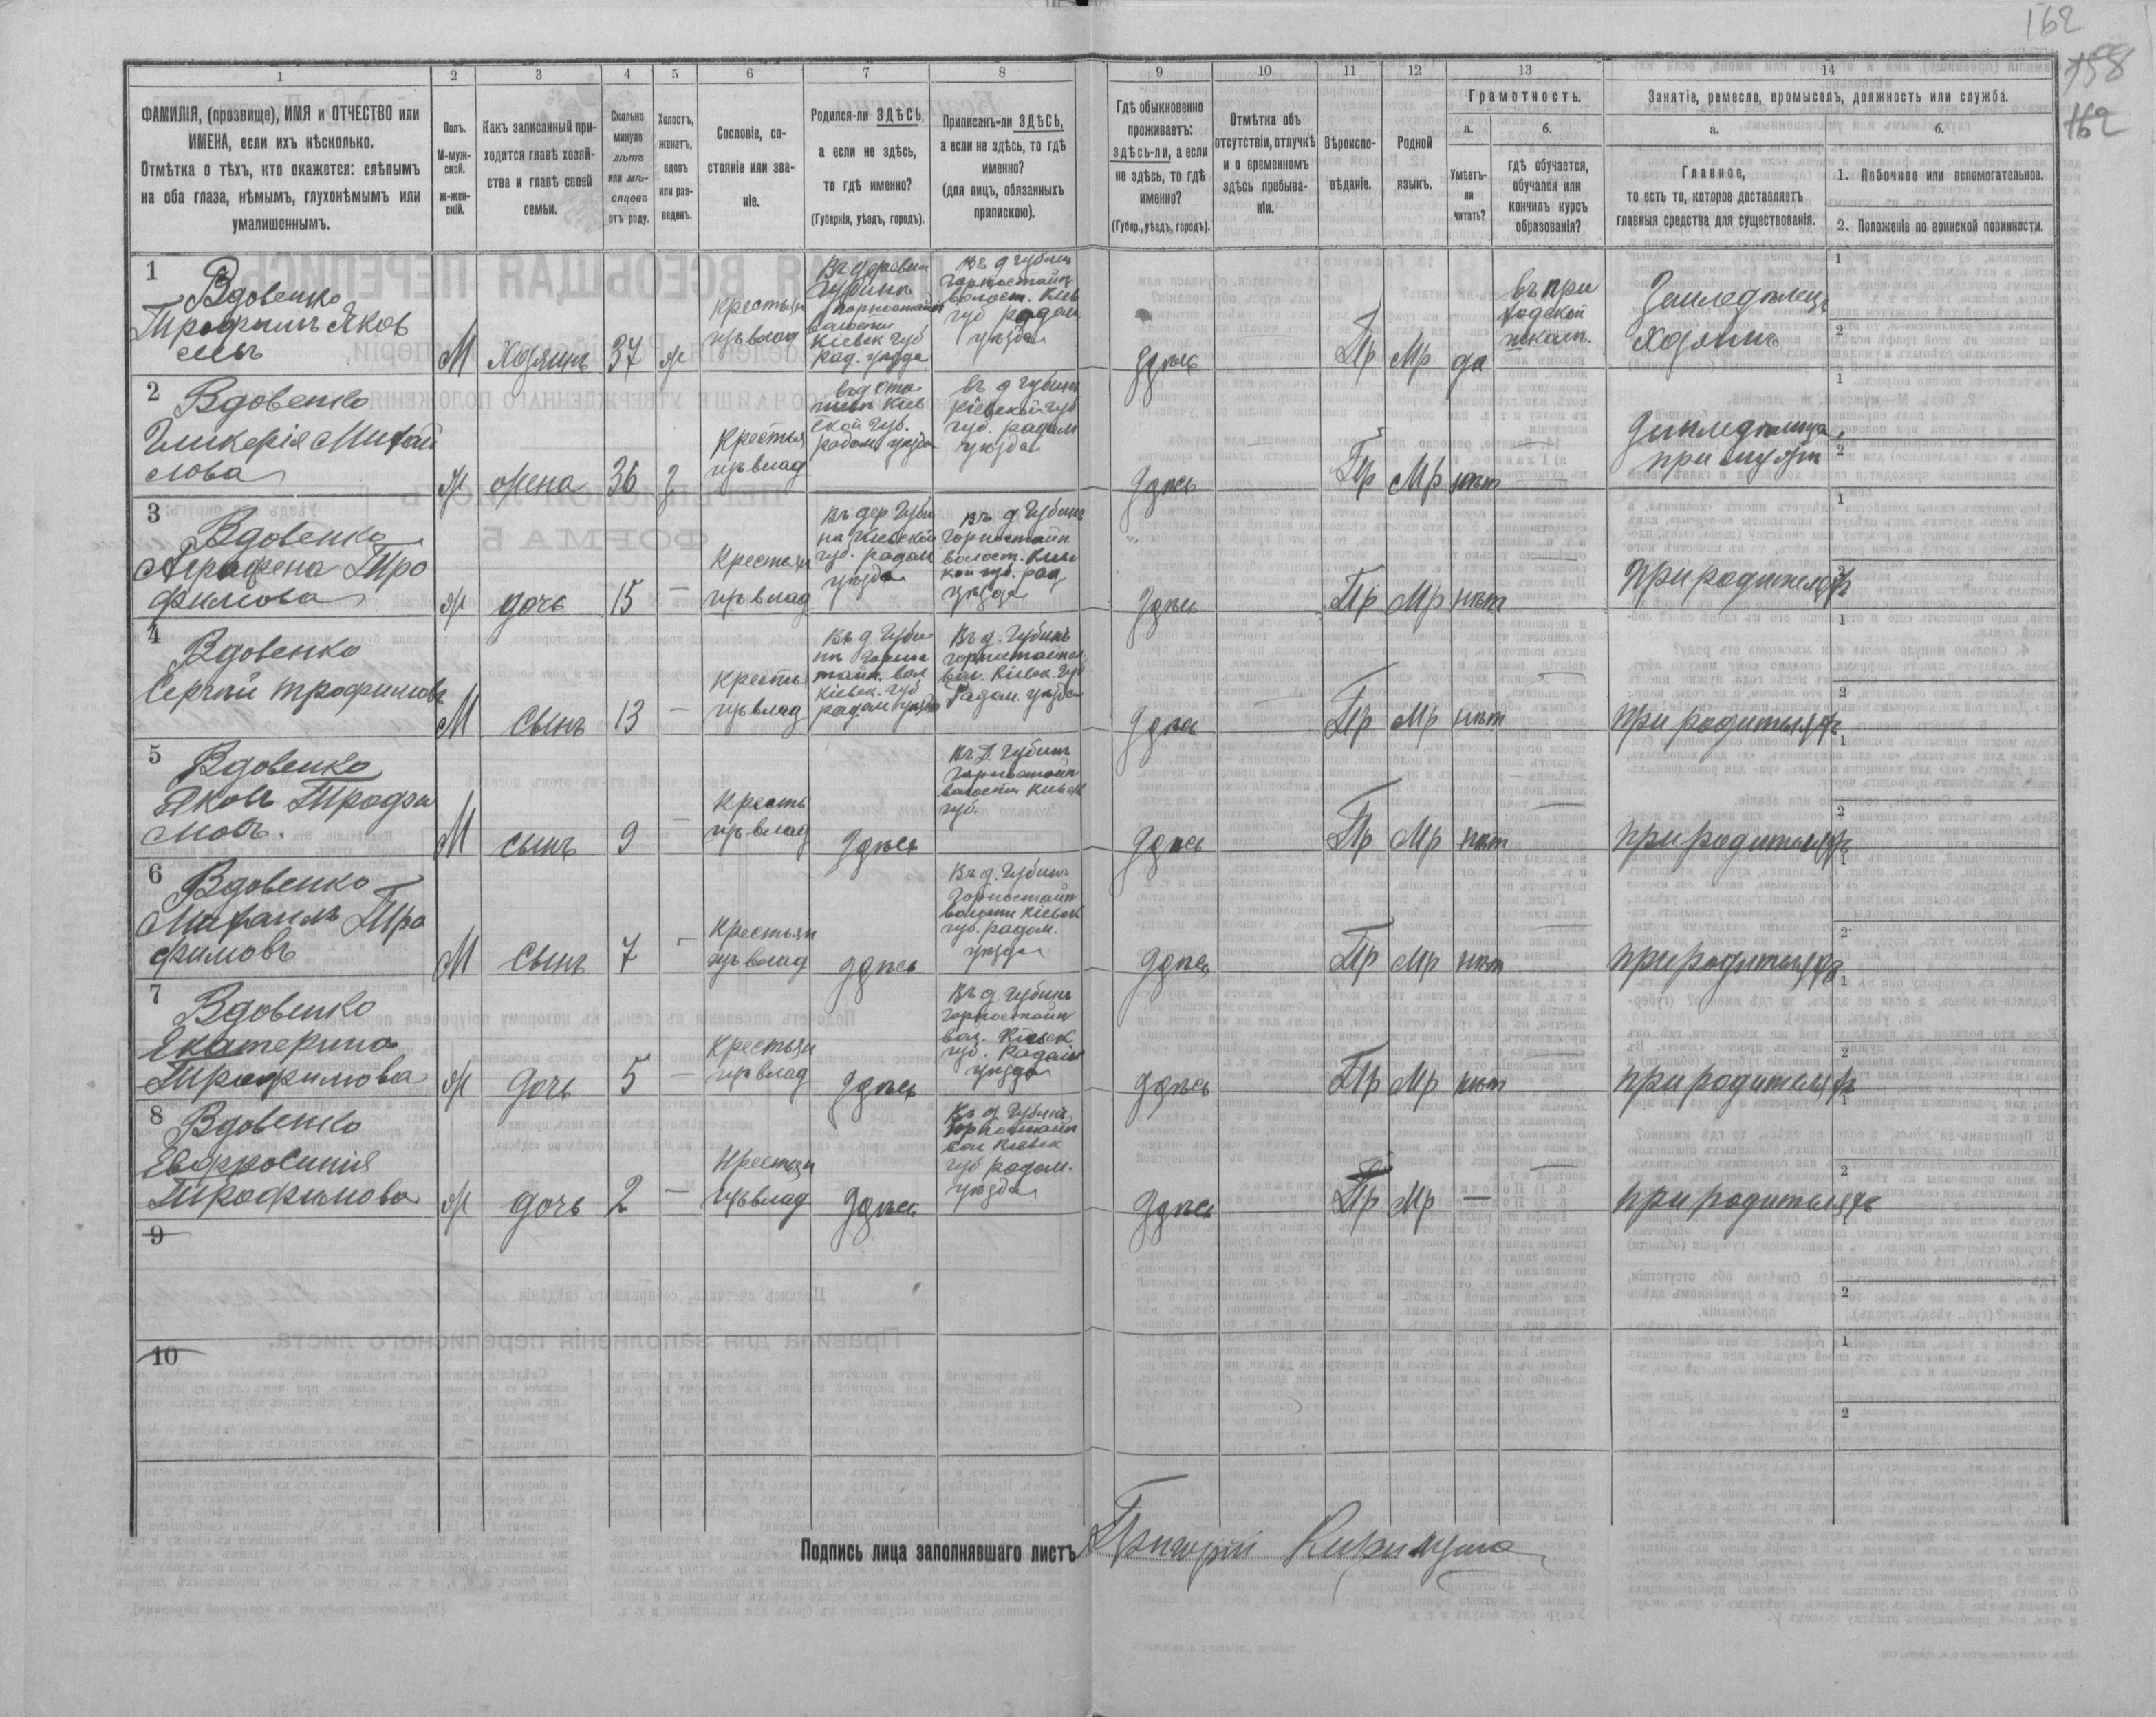 162
158
162
1 2 3 4 5 6 7 8 9 10 11 12 13 14
ФАМИЛІЯ, (прозвище), ИМЯ и ОТЧЕСТВО или
ИМЕНА, если ихъ нѣсколько.
Отмѣтка о тѣхъ, кто окажется: слѣпымъ
на оба глаза, нѣмымъ, глухонѣмымъ или
умалишеннымъ.
Полъ.
М-муж-
ской.
ж-жен-
скій.
Какъ записанный при-
ходится главѣ хозяй-
ства и главѣ своей
семьи.
Сколько
минуло
лѣтъ
или мѣ-
сяцевъ
отъ роду.
Холостъ,
женатъ,
вдовъ
или раз-
веденъ.
Сословіе, со-
стояніе или зва-
ніе.
Родился-ли ЗДѢСЬ,
а если не здѣсь,
то гдѣ именно?
(Губернія, уѣздъ, городъ).
Приписанъ-ли ЗДѢСЬ,
а если не здѣсь, то гдѣ
именно?
(для лицъ, обязанныхъ
припискою).
Гдѣ обыкновенно
проживаетъ:
здѣсь-ли, а если
не здѣсь, то гдѣ
именно?
(Губер., уѣздъ, городъ).
Отмѣтка объ
отсутствіи, отлучкѣ
и о временномъ
здѣсь пребыва-
ніи.
Вѣроиспо-
вѣданіе.
Родной
языкъ.
Грамотность.
а.
Умѣетъ-
ли
читать?
б.
гдѣ обучается,
обучался или
кончилъ курсъ
образованія?
Занятіе, ремесло, промыселъ, должность или служба.
а.
Главное,
то есть то, которое доставляетъ
главныя средства для существованія.
б.
1. Побочное или вспомогательное.
2. Положеніе по воинской повинности.
1
Вдовенко
Трофимъ Яков
М Хозяинъ 37 ж
Крестьян
изъ влад
Въ деревни
Губинъ
волости
Кіевск губ
рад. уѣзда
Въ д Губинъ
волост. Кіев
губ радом
уѣзда
Здѣсь
Пр Мр да
въ при
ходской
школѣ
Земледѣлецъ
хозяинъ
1
2
2
Вдовенко
Гликерія Михай
лова
ж жена 36 з
Крестья
изъ влад
ской губ.
радом уѣзда
въ д Губинъ
Кіевской губ
губ. радом
уѣзда
Здѣсь
Пр Мр нѣт
при мужѣ
1
2
3
Вдовенко
Аграфена Тро
фимова
ж дочь 15 —
Крестьян
изъ влад
Въ дер Губи
нѣ Кіевской
губ. радом
уѣзда
Въ д Губинъ
Горностайп
волост. Кіев
кой губ. рад
уѣзда
Здѣсь
Пр Мр нѣт
При родителяхъ
1
2
4
Вдовенко
Сергѣй Трофимовъ
М Сынъ 13 —
Кресть
изъ влад
Въ д Губи
нѣ Горнос
тайп. вол
Кіевск. губ
радом уѣзда
Въ д. Губинѣ
Горностайпол
вол. Кіевк. губ
Радом. уѣзда
Здѣсь
Пр Мр нѣт
При родителяхъ
1
2
5
Вдовенко
Яковъ Трофи
мовъ.
М сынъ 9 —
Кресть
изъ влад
Здѣсь
Въ д. Губинѣ
Горностайп
волости Кіевск
губ.
Здѣсь
Пр Мр нѣт
При родителяхъ
1
2
6
Вдовенко
Михаилъ Тро
фимовъ
М Сынъ 7 —
Крестьян
изъ влад
здѣсь
Въ д. Губинъ
Горностайп
волости Кіевск
губ. радом.
уѣзда
Здѣсь
Пр Мр нѣт
При родителяхъ
1
2
7
Вдовенко
Екатерина
Трофимова
ж дочь 5 —
Крестьян
изъ влад
Здѣсь
Въ д. Губинъ
Горностайп
вол. Кіевск
губ. Радом
уѣзда
здѣсь
Пр Мр нѣт
При родителяхъ
1
2
8
Вдовенко
Евфросинія
Трофимова
ж дочь 2 —
Крестьян
изъ влад
Здѣсь
Въ д Губинъ
Горностайп
вол Кіевск
губ радом.
уѣзда
Здѣсь
Пр Мр —
При родителяхъ
1
2
9
1
2
10
1
2
Подпись лица заполнявшаго листъ
Григорій